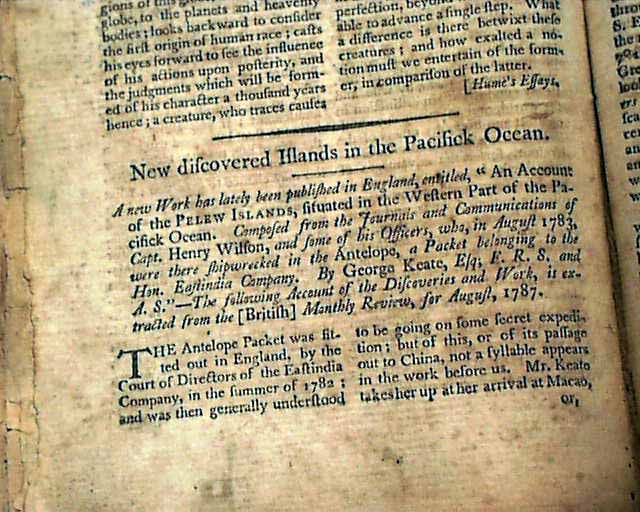 gions of this
globe, to the planets and heavenly
bodies; looks backward to consider
the first origin of human race; casts
his eyes forward to see the influence
of his actions upon posterity, and
the judgments which will be form-
ed of his character a thousand years
hence; a creature, who traces causes
perfection, beyond
able to advance a single step. What
a difference is there betwixt these
creatures; and how exalted a no-
tion must we entertain of the form-
er, in comparison of the latter.
[Hume's Essays.
New discovered Islands in the Pacifick Ocean.
A new Work has lately been published in England, entitled, "An Account
of the PELEW ISLANDS, situated in the Western Part of the Pa-
cifick Ocean. Composed from the Journals and Communications of
Capt. Henry Wilson, and some of his Officers, who, in August 1783,
were there shipwrecked in the Antelope, a Packet belonging to the
Hon. Eastindia Company. By George Keate, Esq; F. R. S. and
A. S."—The following Account of the Discoveries and Work, is ex-
tracted from the [British] Monthly Review, for August, 1787.
THE Antelope Packet was fit-
ted out in England, by the
Court of Directors of the Eastindia
Company, in the summer of 1782;
and was then generally understood
to be going on some secret expedi-
tion; but of this, or of its passage
out to China, not a syllable appears
in the work before us. Mr. Keate
takes her up at her arrival at Macao,
or,